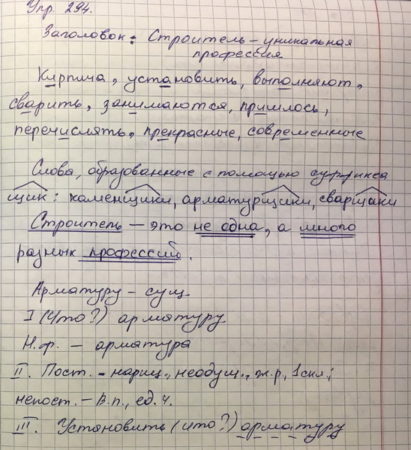 Упр. 294.
Заголовок: Строитель – уникальная
профессия
Кирпича, установить, выполняют,
сварить, занимаются, пришлось,
перечислять, прекрасные, современные
Слова, образованные с помощью суффикса
щик: каменщики, арматурщики, сварщики
Строитель – это не одна, а много
разных профессий.
Арматуру – сущ.
I (Что?) арматуру
Н.ф. – арматура
II. Пост. – нариц., неодуш., ж.р., 1 скл;
непост. – В.п., ед.ч.
III. Установить (что?) арматуру